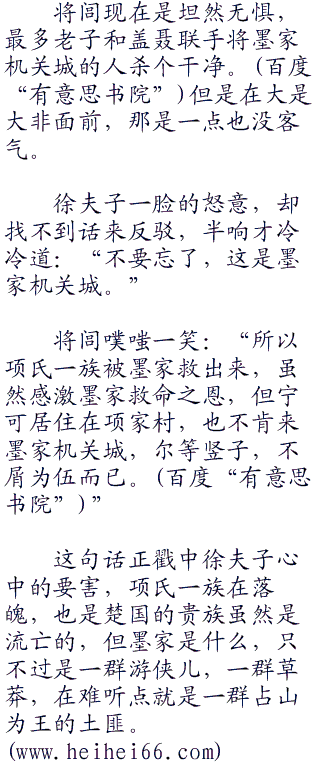 将闾现在是坦然无惧，
最多老子和盖聂联手将墨家
机关城的人杀个干净。(百度
“有意思书院”)但是在大是
大非面前，那是一点也没客
气。
徐夫子一脸的怒意，却
找不到话来反驳，半响才冷
冷道：“不要忘了，这是墨
家机关城。”
将闾噗嗤一笑：“所以
项氏一族被墨家救出来，虽
然感激墨家救命之恩，但宁
可居住在项家村，也不肯来
墨家机关城，尔等竖子，不
屑为伍而已。(百度“有意思
书院”)”
这句话正戳中徐夫子心
中的要害，项氏一族在落
魄，也是楚国的贵族虽然是
流亡的，但墨家是什么，只
不过是一群游侠儿，一群草
莽，在难听点就是一群占山
为王的土匪。
(www.heihei66.com)